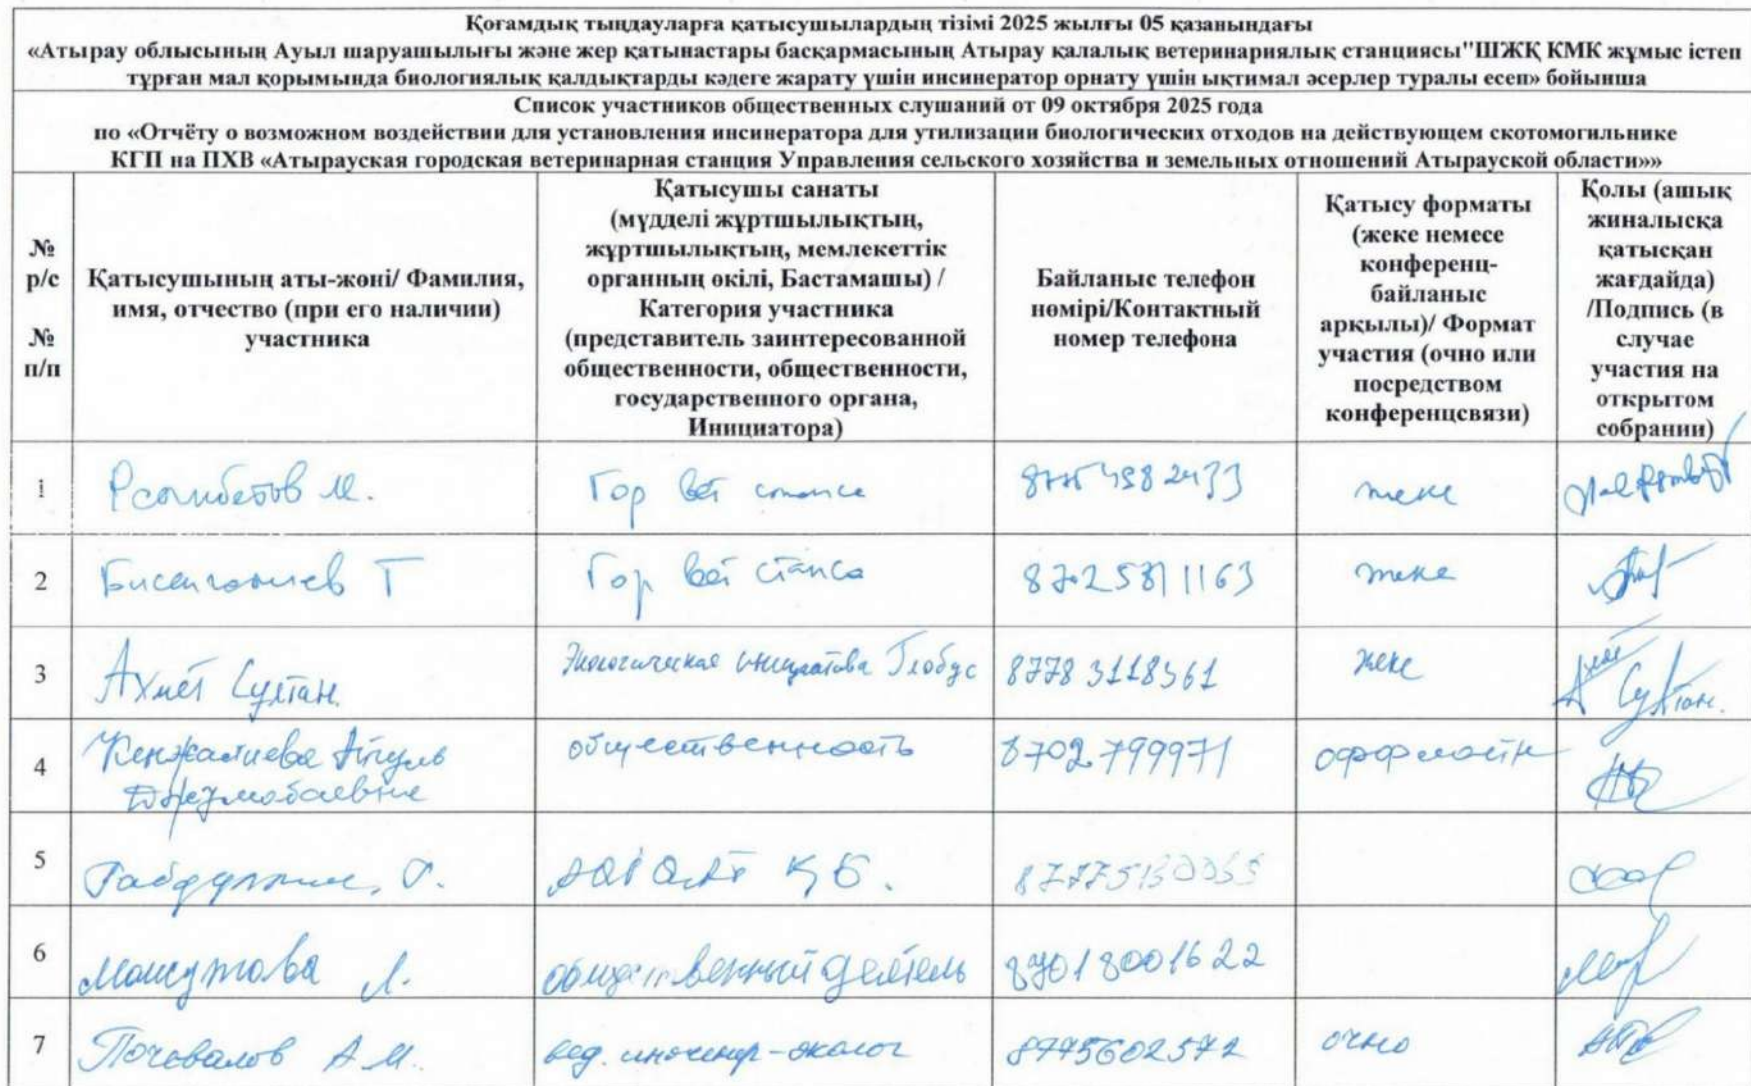 Қоғамдық тыңдауларға қатысушылардың тізімі 2025 жылғы 05 қазанындағы
«Атырау облысының Ауыл шаруашылығы және жер қатынастары басқармасының Атырау қалалық ветеринариялық станциясы"ШЖҚ КМК жұмыс істеп
тұрған мал қорымында биологиялық қалдықтарды кәдеге жарату үшін инсинератор орнату үшін ықтимал әсерлер туралы есеп» бойынша
Список участников общественных слушаний от 09 октября 2025 года
по «Отчёту о возможном воздействии для установления инсинератора для утилизации биологических отходов на действующем скотомогильнике
КГП на ПХВ «Атырауская городская ветеринарная станция Управления сельского хозяйства и земельных отношений Атырауской области»»
№
р/с
№
п/п
Қатысушының аты-жөні/ Фамилия,
имя, отчество (при его наличии)
участника
Қатысушы санаты
(мүдделі жұртшылықтың,
жұртшылықтың, мемлекеттік
органның өкілі, Бастамашы) /
Категория участника
(представитель заинтересованной
общественности, общественности,
государственного органа,
Инициатора)
Байланыс телефон
нөмірі/Контактный
номер телефона
Қатысу форматы
(жеке немесе
конференц-
байланыс
арқылы)/ Формат
участия (очно или
посредством
конференцсвязи)
Қолы (ашық
жиналысқа
қатысқан
жағдайда)
/Подпись (в
случае
участия на
открытом
собрании)
1 М. Гор вет жеке
2 Бисенгалиев Т Гор вет станса жеке
3 Ахмет Султан. Экологическая инициатива Глобус 87783118361 жеке Султан.
4 Кенжалиева общественность 8702799971 оффлайн
5
6 Л. общественный деятель 87018001622
7 Почовалов А.М. вед. инженер-эколог 8775602572 очно